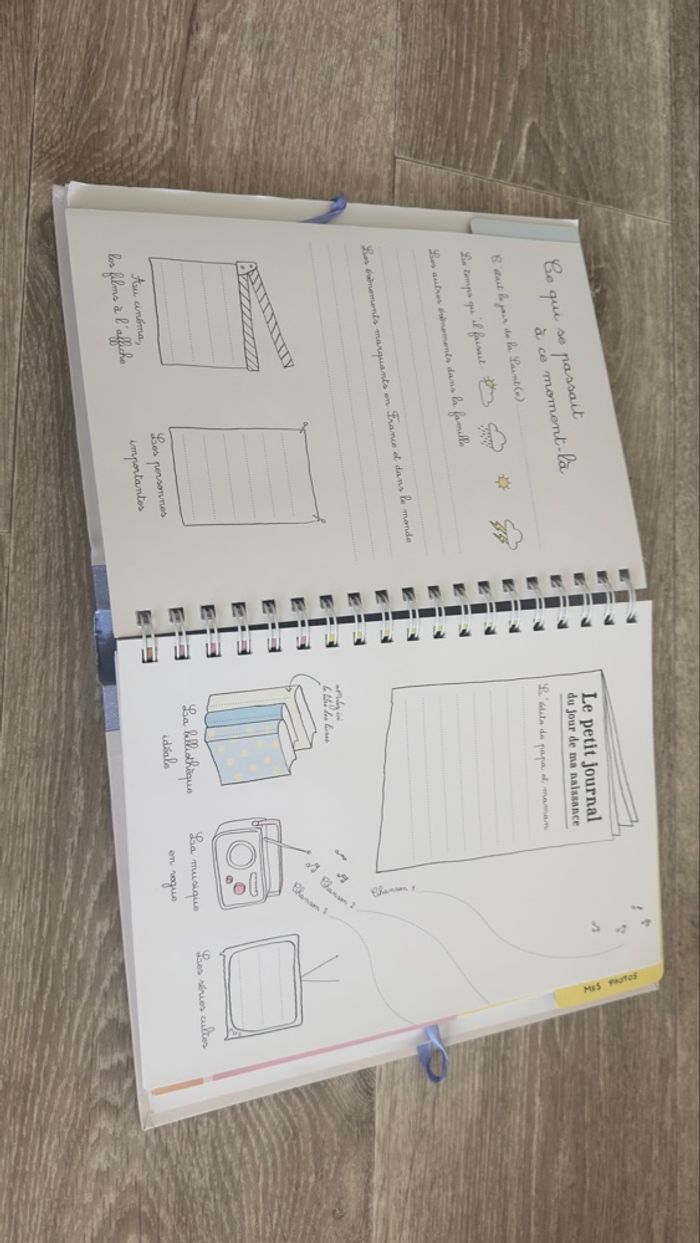 Ce qui se passait
à ce moment-là
C'était le jour de la Saint(e)
Le temps qu'il faisait
Les autres évènements dans la famille
Les évènements marquants en France et dans le monde
Au cinéma,
les films à l'affiche
Les personnes
importantes
Le petit journal
du jour de ma naissance
L'édito de papa et maman
Chanson 1
Chanson 2
Chanson 3
le titre des livres
La bibliothèque
idéale
La musique
en vogue
Les séries cultes
MES PHOTOS